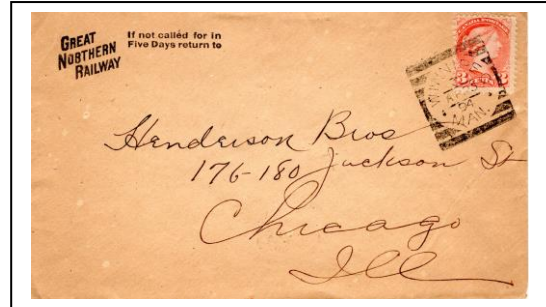 GREAT
NORTHERN
RAILWAY
If not called for in
Five Days return to
3 3
MAN.
Henderson Bros
176-180 Jackson St
Chicago
Ill